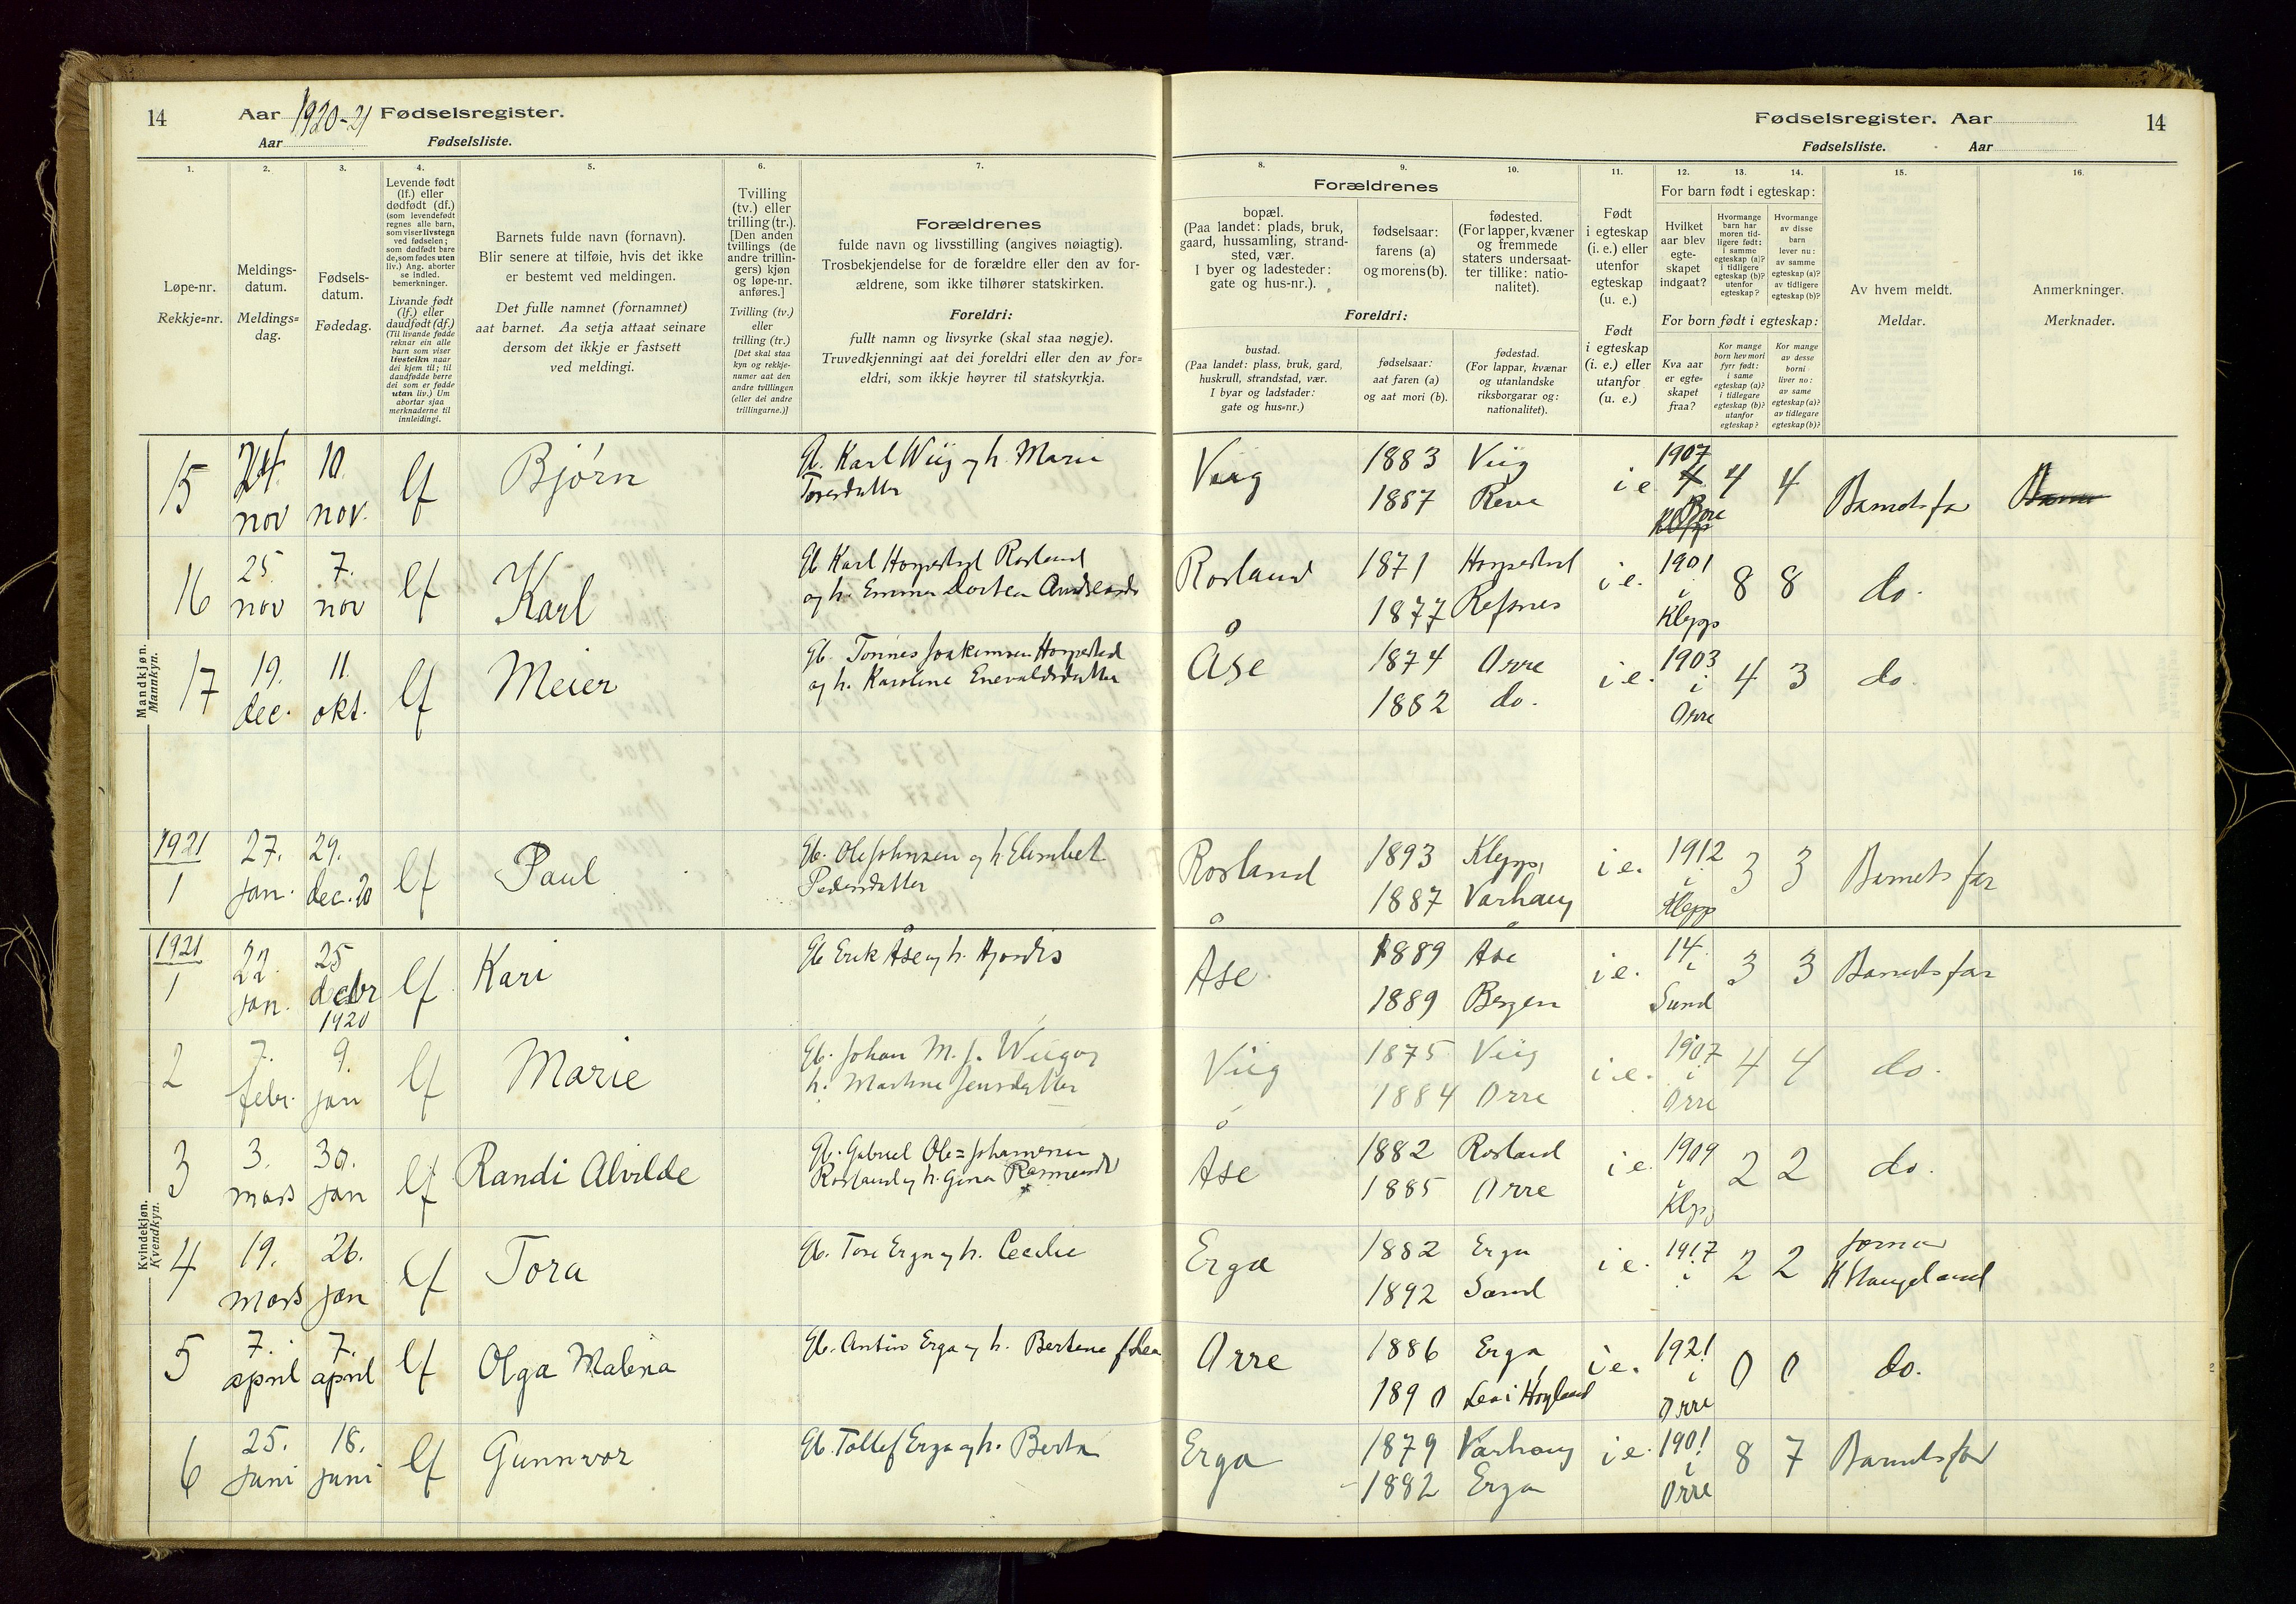 14 Aar 1920-21 Fødselsregister.
Aar Fødselsliste.
Fødselsregister. Aar 14
Fødselsliste. Aar
1. 2. 3. 4. 5. 6. 7. 8. 9. 10. 11. 12. 13. 14. 15. 16.
Løpe-nr.
Rekkje=nr.
Meldings-
datum.
Meldings=
dag.
Fødsels-
datum.
Fødedag.
Levende født
(lf.) eller
dødfødt (df.)
(som levendefødt
regnes alle barn,
som viser livstegn
ved fødselen;
som dødfødt bare
de, som fødes uten
liv.) Ang. aborter
se indled.
bemerkninger.
Livande født
(lf.) eller
daudfødt (df.)
(Til livande fødde
reknar ein alle
barn som viser
livsteikn naar
dei kjem til; til
daudfødde berre
dei som er fødde
utan liv.) Um
abortar sjaa
merknaderne til
innleidingi.
Barnets fulde navn (fornavn).
Blir senere at tilføie, hvis det ikke
er bestemt ved meldingen.
Det fulle namnet (fornamnet)
aat barnet. Aa setja attaat seinare
dersom det ikkje er fastsett
ved meldingi.
Tvilling
(tv.) eller
trilling (tr.).
[Den anden
tvillings (de
andre trillin-
gers) kjøn
og løpe-nr.
anføres.]
Tvilling (tv.)
eller
trilling (tr.)
[Det skal staa
kyn og rekkje-
numer aat den
andre tvillingen
(eller dei andre
trillingarne.)]
Forældrenes
fulde navn og livsstilling (angives nøiagtig).
Trosbekjendelse for de forældre eller den av for-
ældrene, som ikke tilhører statskirken.
Foreldri:
fullt namn og livsyrke (skal staa nøgje).
Truvedkjenningi aat dei foreldri eller den av for=
eldri, som ikkje høyrer til statskyrkja.
Forældrenes
bopæl.
(Paa landet: plads, bruk,
gaard, hussamling, strand-
sted, vær.
I byer og ladesteder:
gate og hus-nr.).
fødselsaar:
farens (a)
og morens (b).
fødested.
(For lapper, kvæner
og fremmede
staters undersaat-
ter tillike: natio-
nalitet).
Foreldri:
bustad.
(Paa landet: plass, bruk, gard,
huskrull, strandstad, vær.
I byar og ladstader:
gate og hus=nr.)
fødselsaar:
aat faren (a)
og aat mori (b).
fødestad.
(For lappar, kvænar
og utanlandske
riksborgarar og:
nationalitet).
Født
i egteskap
(i. e.) eller
utenfor
egteskap
(u. e.)
Født
i egteskap
(i. e.) eller
utanfor
(u. e.)
For barn født i egteskap:
Hvilket
aar blev
egte-
skapet
indgaat?
Hvormange
barn har
moren tid-
ligere født:
i samme
egteskap (a)?
i tidligere
egteskap (b)?
utenfor
egteskap?
Hvormange
av disse
barn
lever nu:
av samme
egteskap (a)?
av tidligere
egteskap (b)?
For born født i egteskap:
Kva aar
er egte=
skapet
fraa?
Kor mange
born hev mori
fyrr født:
i same
egteskap (a)?
i tidlegare
egteskap (b)?
utanfor
egteskap?
Kor mange
av desse
borni
liver no:
av same
egteskap (a)?
av tidlegare
egteskap (b)?
Av hvem meldt.
Meldar.
Anmerkninger.
Merknader.
Mandkjøn.
Mannkyn.
15 24. nov 10. nov. lf Bjørn Gb. Karl Wiig og h. Marie
Toresdatter
Viig 1883 1887 Viig Reve i e 1907 4 4 Barnets far
16 25 nov 7. nov lf Karl Gb Karl Horpestad Rosland
og h. Emma Dortea
Rosland 1871 1877 Horpestad Refsnes i e. 1901 i Klepp 8 8 do.
17 19. dec. 11. okt. lf Meier Gb. Tønnes Joakimsen Horpestad
og h. Karoline Enevaldsdatter
Åse 1874 1882 Orre do. i e. 1903 i Orre 4 3 do.
1921
1 27. jan. 29. dec. 20 lf Paul Gb. Ole Johnsen og h. Elisabet
Pedersdatter
Rosland 1893 1887 Klepp, Varhaug i e. 1912 i Klepp 3 3 Barnets far
Kvindekjøn.
Kvendkyn.
1921
1 22. jan. 25 debr 1920 lf Kari Gb Erik Åse og h. Hjørdis
Åse 1889 1889 Åse Bergen i e. 14. i Sund 3 3 Barnets far
2 7. febr. 9. jan lf Marie Gb. Johan M. J. Wiig og
h. Martine Jensdatter
Viig 1875 1884 Viig Orre i e. 1907 i Orre 4 4 do.
3 3. mars 30. jan lf Randi Alvilde Gb. Gabriel Ole=Johannesen
Rosland og h. Gina
Åse 1882 1885 Rosland Orre i e. 1909 i Klepp 2 2 do.
4 19. mars 26. jan lf Tora Gb. Tore Erga og h. Cecilie
Erga 1882 1892 Erga Sand i e. 1917 i 2 2 Jormor
K Haugeland
5 7. april 7. april lf Olga Malena Gb. Anton Erga og h. Bertine
Orre 1886 1890 Erga Høyland i e. 1921 i Orre 0 0 do.
6 25. juni 18. juni lf Gunnvor Gb. Tollef Erga og h. Berta
Erga 1879 1882 Varhaug Erga i e. 1901 i Orre 8 7 Barnets far